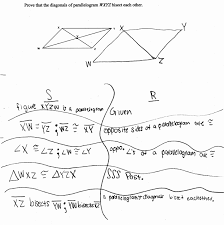 Prove that the diagonals of parallelogram WXYZ bisect each other.
X Y
W Z
S R
figure XYZW is a parallelogram Given
XW ≅ YZ ; WZ ≅ XY opposite sides of a parallelogram are ≅
∠X ≅ ∠Z ; ∠W ≅ ∠Y oppo. ∠'s of a parallelogram are ≅
△WXZ ≅ △YZX SSS Post.
XZ bisects YW ; YW bisects XZ a parallelogram's diagonals bisect each other.